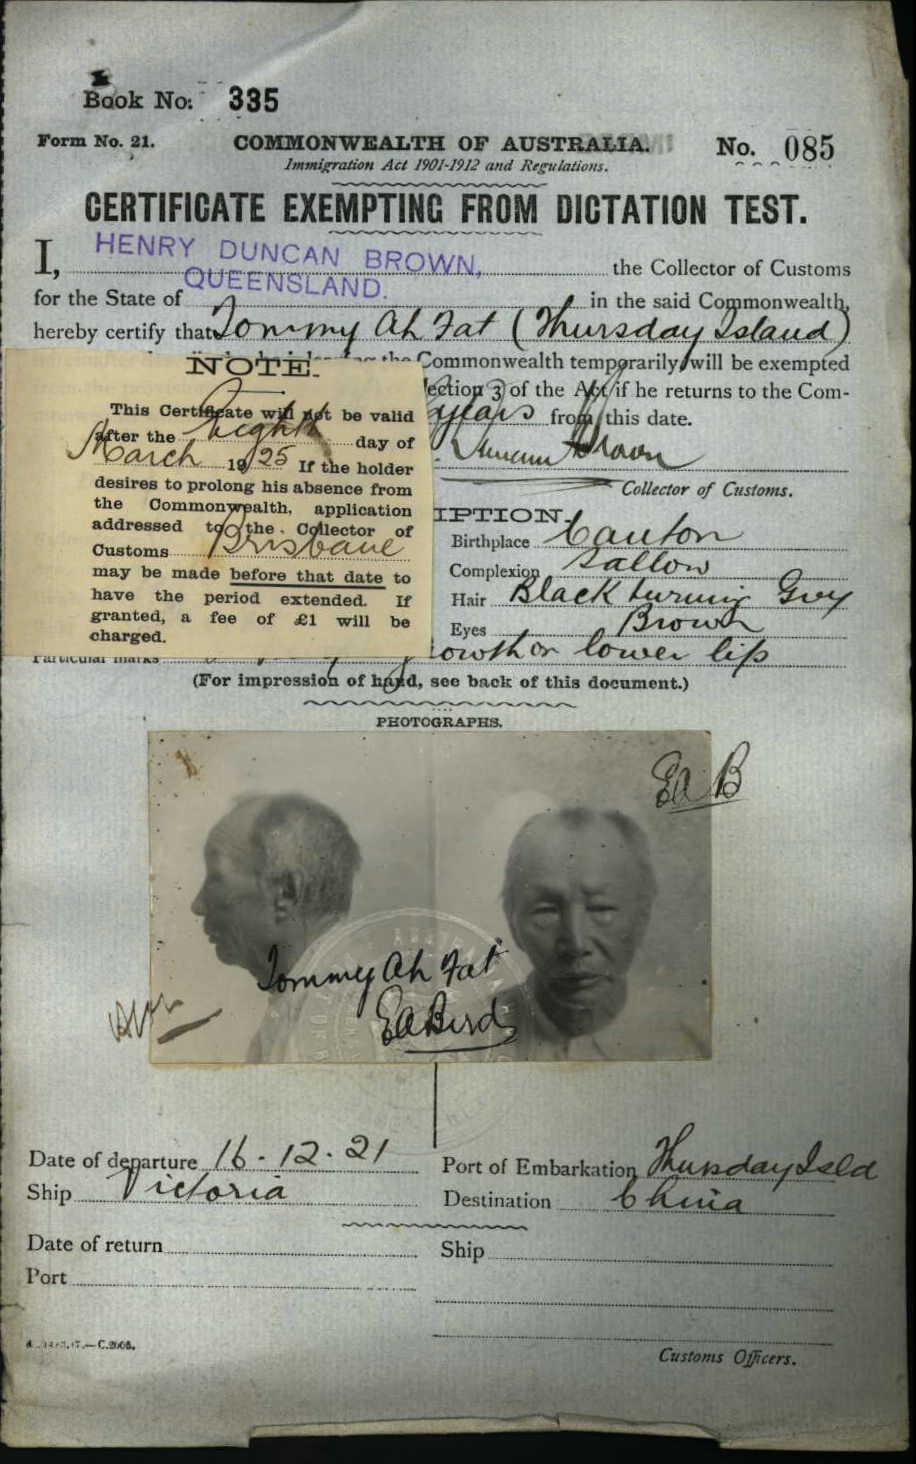 Book No: 335
Form No. 21. COMMONWEALTH OF AUSTRALIA. No. 085
Immigration Act 1901-1912 and Regulations.
CERTIFICATE EXEMPTING FROM DICTATION TEST.
I, HENRY DUNCAN BROWN, the Collector of Customs
for the State of QUEENSLAND. in the said Commonwealth,
hereby certify that Tommy Ah Fat (Thursday Island)
the Commonwealth temporarily, will be exempted
3 of the Act if he returns to the Com-
years from this date.
Brown
Collector of Customs.
NOTE.
This Certificate will not be valid
after the Eighth day of
March 1925 If the holder
desires to prolong his absence from
the Commonwealth, application
addressed to the Collector of
Customs Brisbane
may be made before that date to
have the period extended. If
granted, a fee of £1 will be
charged.
IPTION.
Birthplace Canton
Complexion Sallow
Hair Black turning Grey
Eyes Brown
Particular marks on lower lip
(For impression of hand, see back of this document.)
PHOTOGRAPHS.
EAB
Tommy Ah Fat
EABird
Date of departure 16-12-21 Port of Embarkation Thursday Isld
Ship Victoria Destination China
Date of return Ship
Port
Customs Officers.